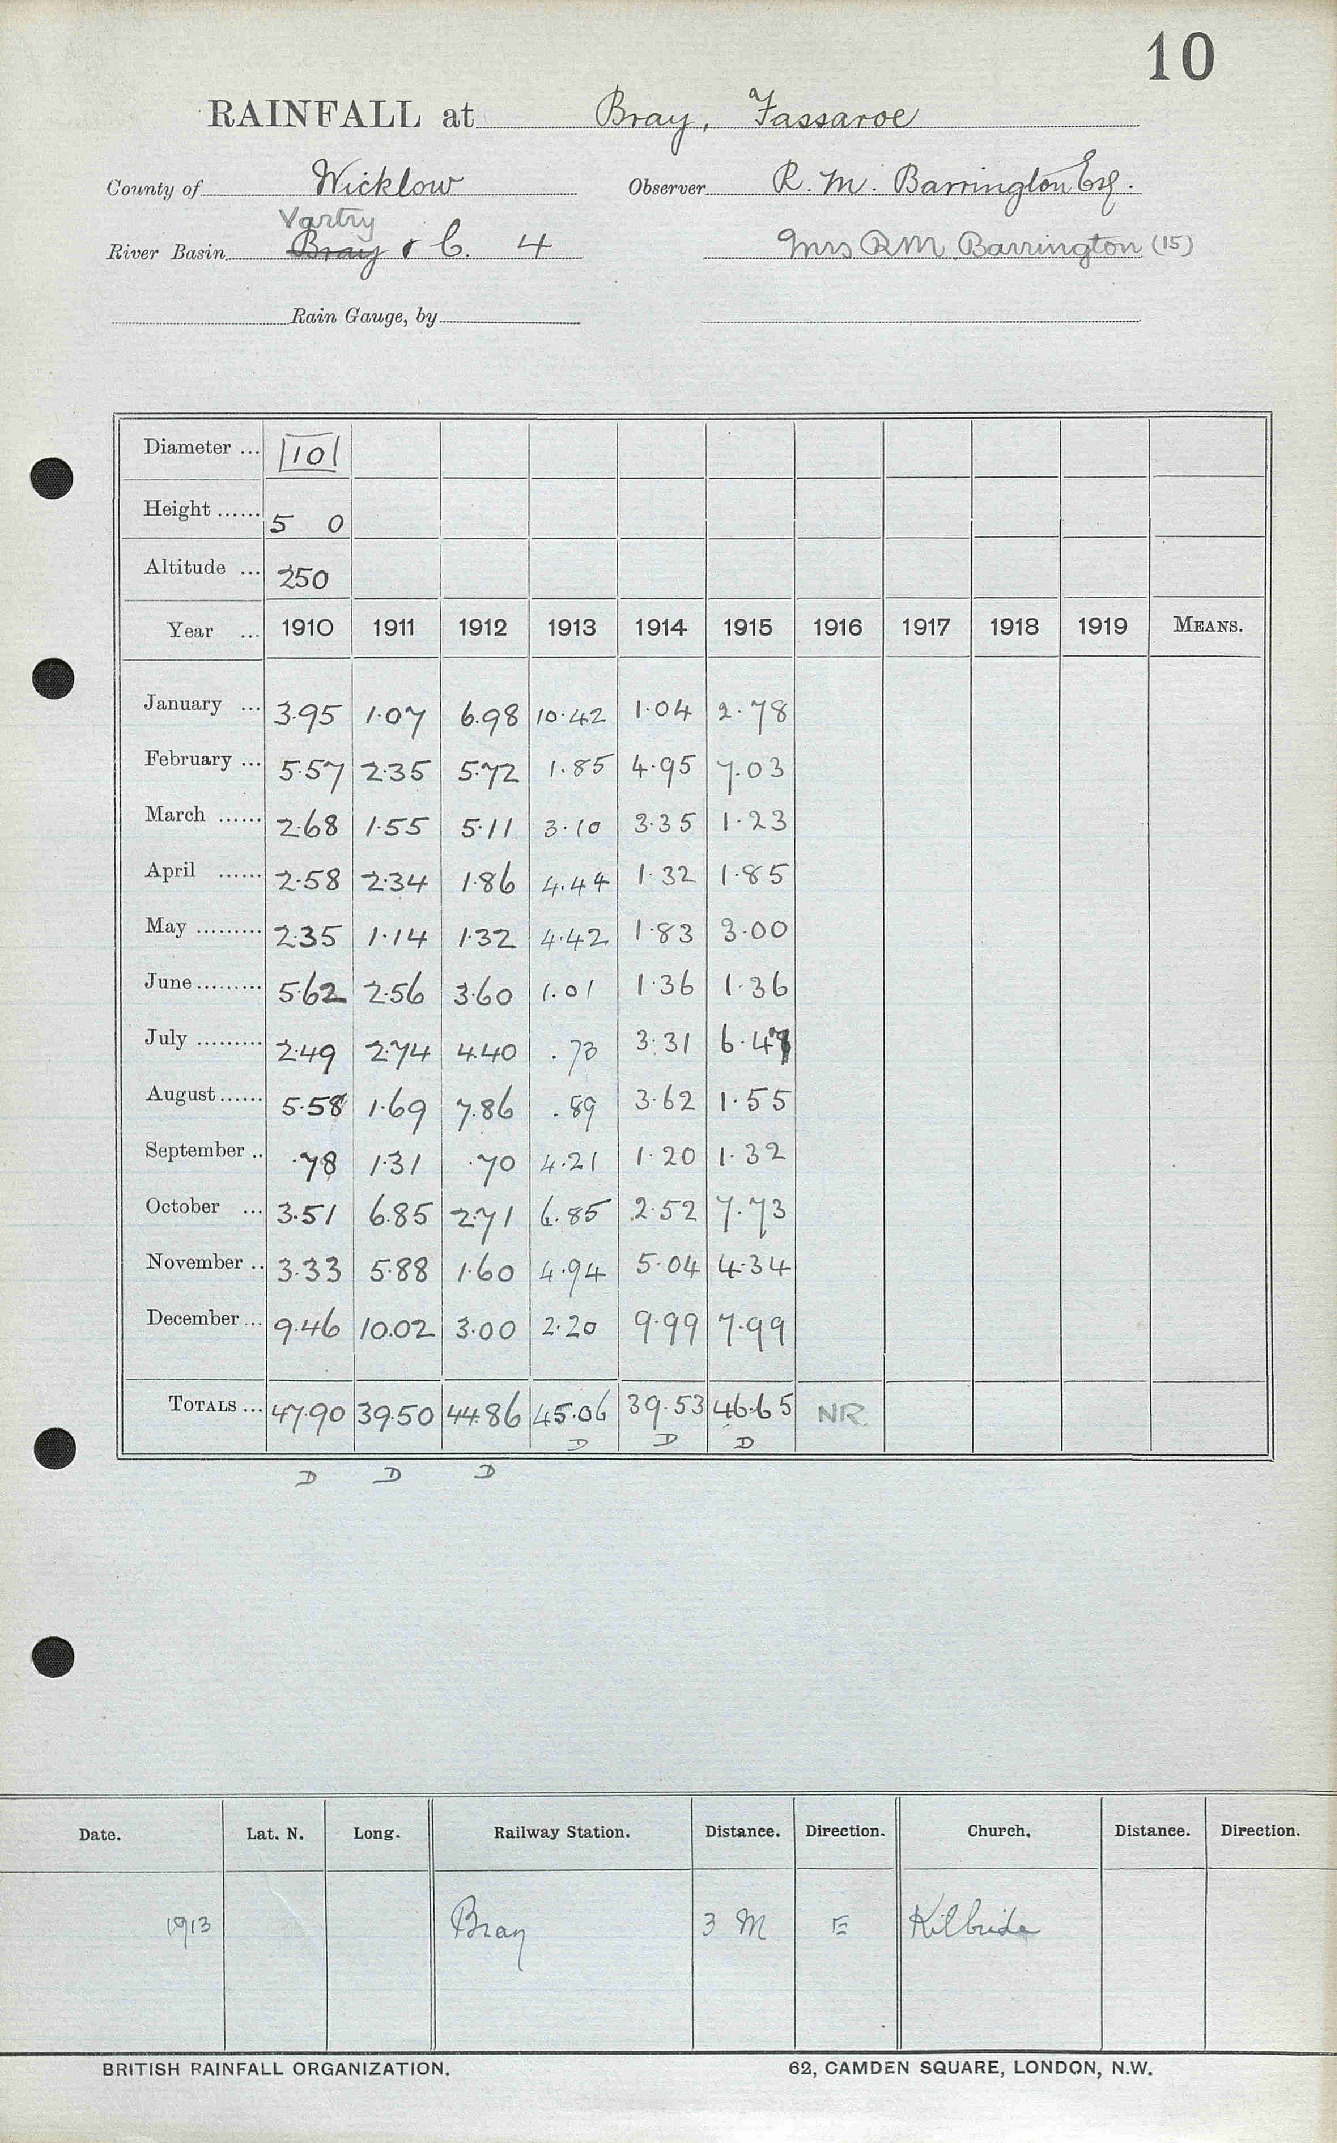 10
RAINFALL at Bray, Fassaroe
County of Wicklow Observer R. M. Barrington Esq.
Vartry
River Basin Bray & C. 4 Mrs R M Barrington (15)
Rain Gauge, by
Diameter ... |10|
Height ...... 5 0
Altitude ... 250
Year ... 1910 1911 1912 1913 1914 1915 1916 1917 1918 1919 MEANS.
January ... 3.95 1.07 6.98 10.42 1.04 2.78
February ... 5.57 2.35 5.72 1.85 4.95 7.03
March ...... 2.68 1.55 5.11 3.10 3.35 1.23
April ...... 2.58 2.34 1.86 4.44 1.32 1.85
May ......... 2.35 1.14 1.32 4.42 1.83 3.00
June ......... 5.62 2.56 3.60 1.01 1.36 1.36
July ......... 2.49 2.74 4.40 .73 3.31 6.47
August ...... 5.58 1.69 7.86 .89 3.62 1.55
September .. .78 1.31 .70 4.21 1.20 1.32
October ... 3.51 6.85 2.71 6.85 2.52 7.73
November .. 3.33 5.88 1.60 4.94 5.04 4.34
December ... 9.46 10.02 3.00 2.20 9.99 7.99
TOTALS ... 47.90 39.50 44.86 45.06 39.53 46.65 NR
D D D
D D D
Date. Lat. N. Long. Railway Station. Distance. Direction. Church. Distance. Direction.
1913 Bray 3 M E Kilbride
BRITISH RAINFALL ORGANIZATION. 62, CAMDEN SQUARE, LONDON, N.W.